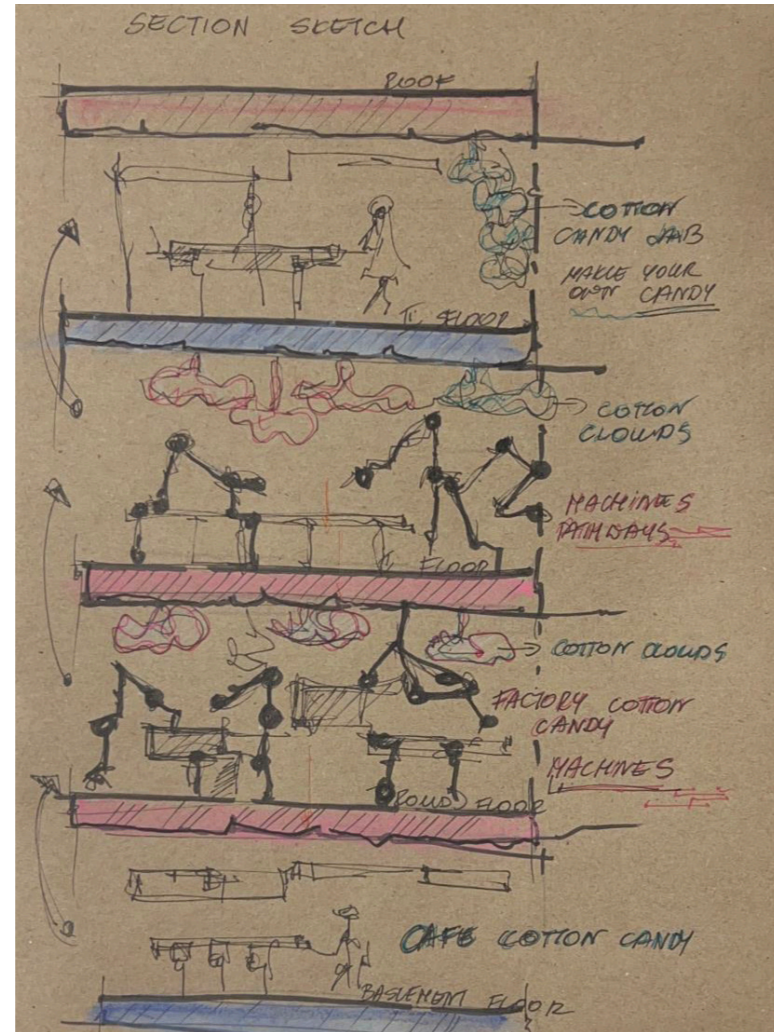 SECTION SKETCH
ROOF
COTTON
CANDY
MAKE YOUR
OWN CANDY
FLOOR
COTTON
CLOUDS
MACHINES
PATHWAYS
FLOOR
COTTON CLOUDS
FACTORY COTTON
CANDY
MACHINES
FLOOR
CAFE COTTON CANDY
BASEMENT FLOOR